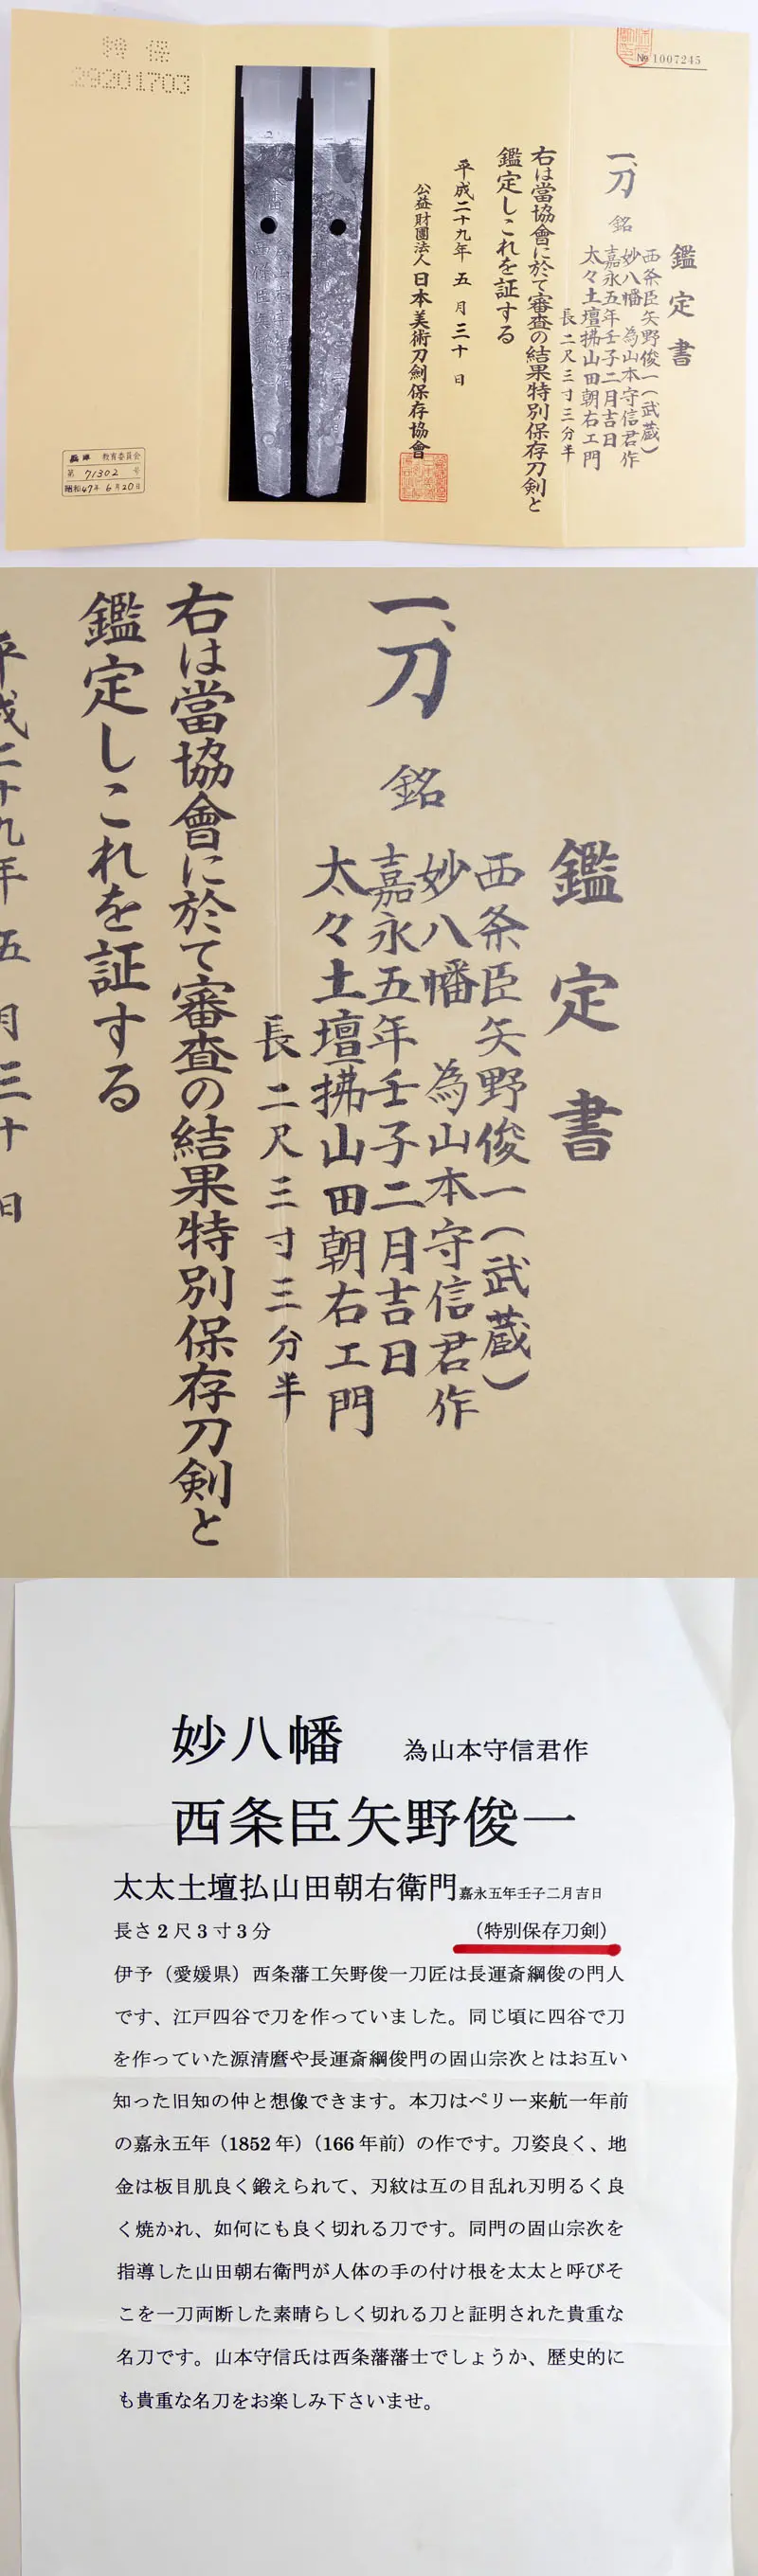 № 1007245
鑑定書
一、刀 銘
西条臣矢野俊一(武蔵)
妙八幡 為山本守信君作
嘉永五年壬子二月吉日
太々土壇拂山田朝右エ門
長二尺三寸三分半
右は當協會に於て審査の結果特別保存刀剣と
鑑定しこれを証する
平成二十九年五月三十日
公益財團法人日本美術刀劍保存協會
特保
29201703
教育委員会
第71302号
昭和47年6月20日
鑑定書
一、刀 銘
西条臣矢野俊一(武蔵)
妙八幡 為山本守信君作
嘉永五年壬子二月吉日
太々土壇拂山田朝右エ門
長二尺三寸三分半
右は當協會に於て審査の結果特別保存刀剣と
鑑定しこれを証する
平成二十九年五月三十日
妙八幡 為山本守信君作
西条臣矢野俊一
太太土壇払山田朝右衛門嘉永五年壬子二月吉日
長さ2尺3寸3分 (特別保存刀剣)
伊予(愛媛県)西条藩工矢野俊一刀匠は長運斎綱俊の門人
です、江戸四谷で刀を作っていました。同じ頃に四谷で刀
を作っていた源清麿や長運斎綱俊門の固山宗次とはお互い
知った旧知の仲と想像できます。本刀はペリー来航一年前
の嘉永五年(1852年)(166年前)の作です。刀姿良く、地
金は板目肌良く鍛えられて、刃紋は互の目乱れ刃明るく良
く焼かれ、如何にも良く切れる刀です。同門の固山宗次を
指導した山田朝右衛門が人体の手の付け根を太太と呼びそ
こを一刀両断した素晴らしく切れる刀と証明された貴重な
名刀です。山本守信氏は西条藩藩士でしょうか、歴史的に
も貴重な名刀をお楽しみ下さいませ。